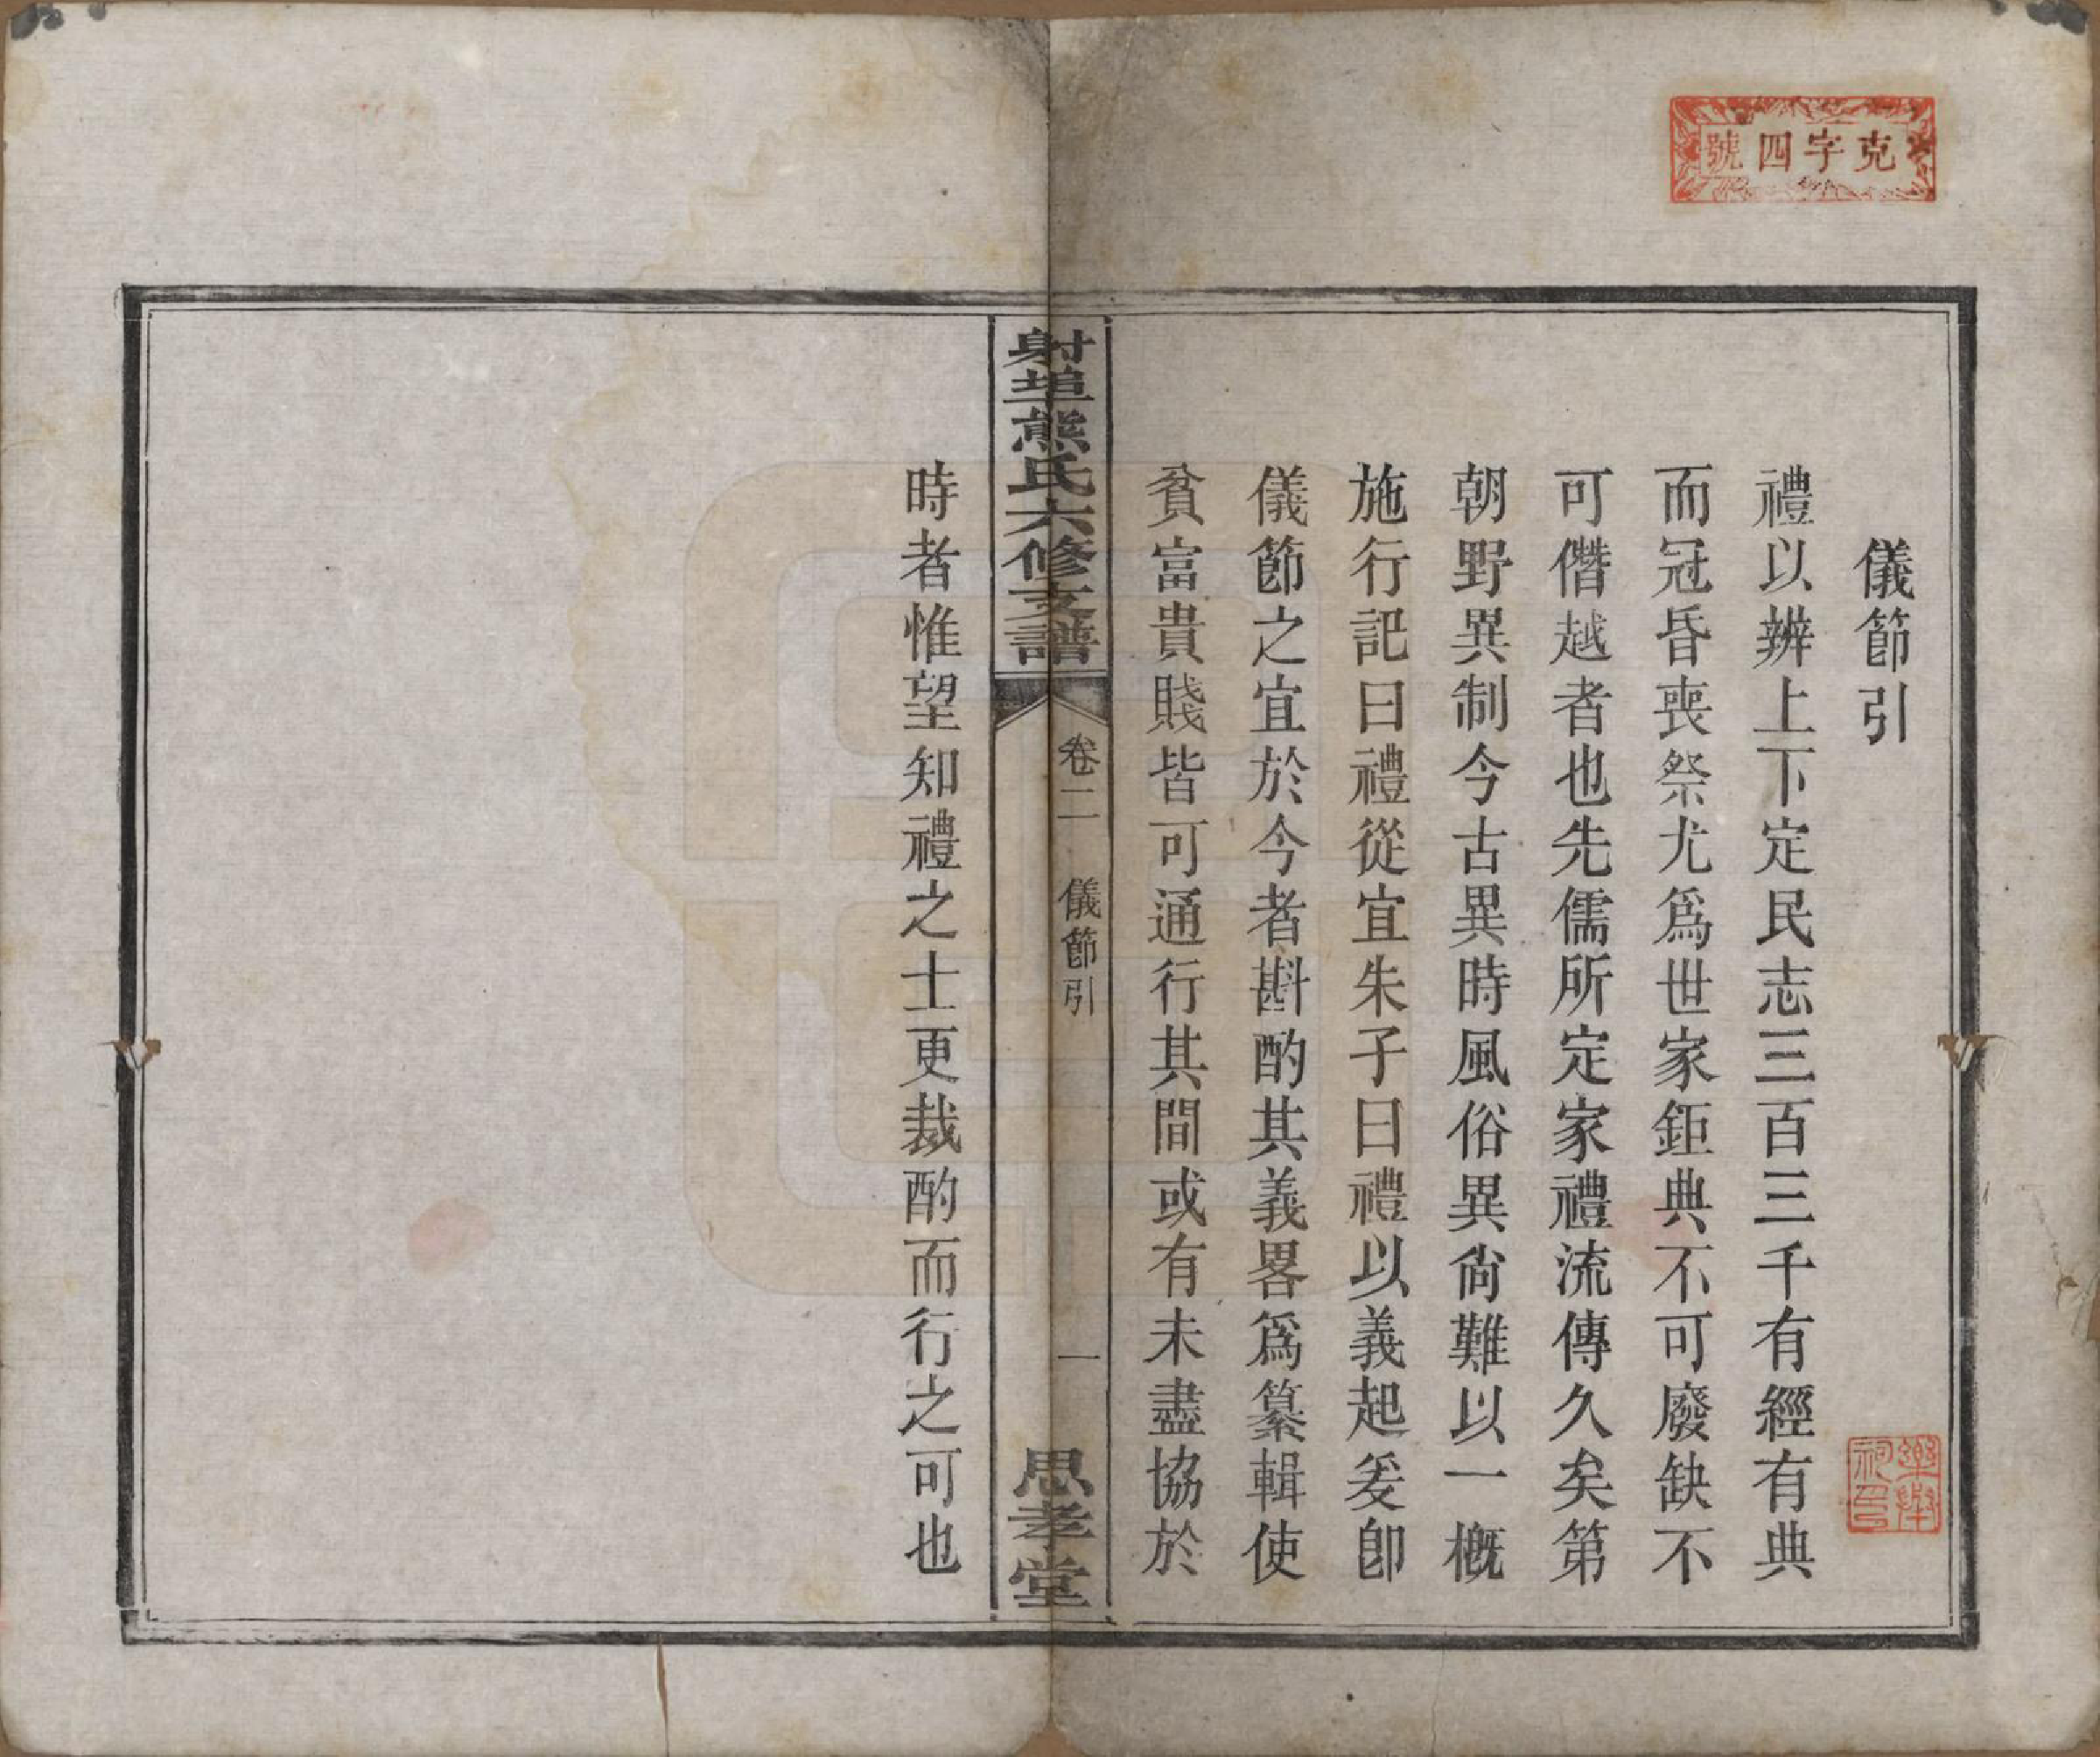 克字四號
儀節引
禮以辨上下定民志三百三千有經有典
而冠昏喪祭尤爲世家鉅典不可廢缺不
可僭越者也先儒所定家禮流傳久矣第
朝野異制今古異時風俗異尙難以一概
施行記曰禮從宜朱子曰禮以義起爰卽
儀節之宜於今者斟酌其義畧爲纂輯使
貧富貴賤皆可通行其間或有未盡協於
射埠熊氏六修支譜
卷二
儀節引
一
思孝堂
時者惟望知禮之士更裁酌而行之可也